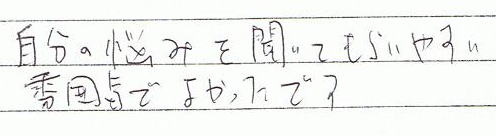 自分の悩みを聞いてもらいやすい
雰囲気でよかったです